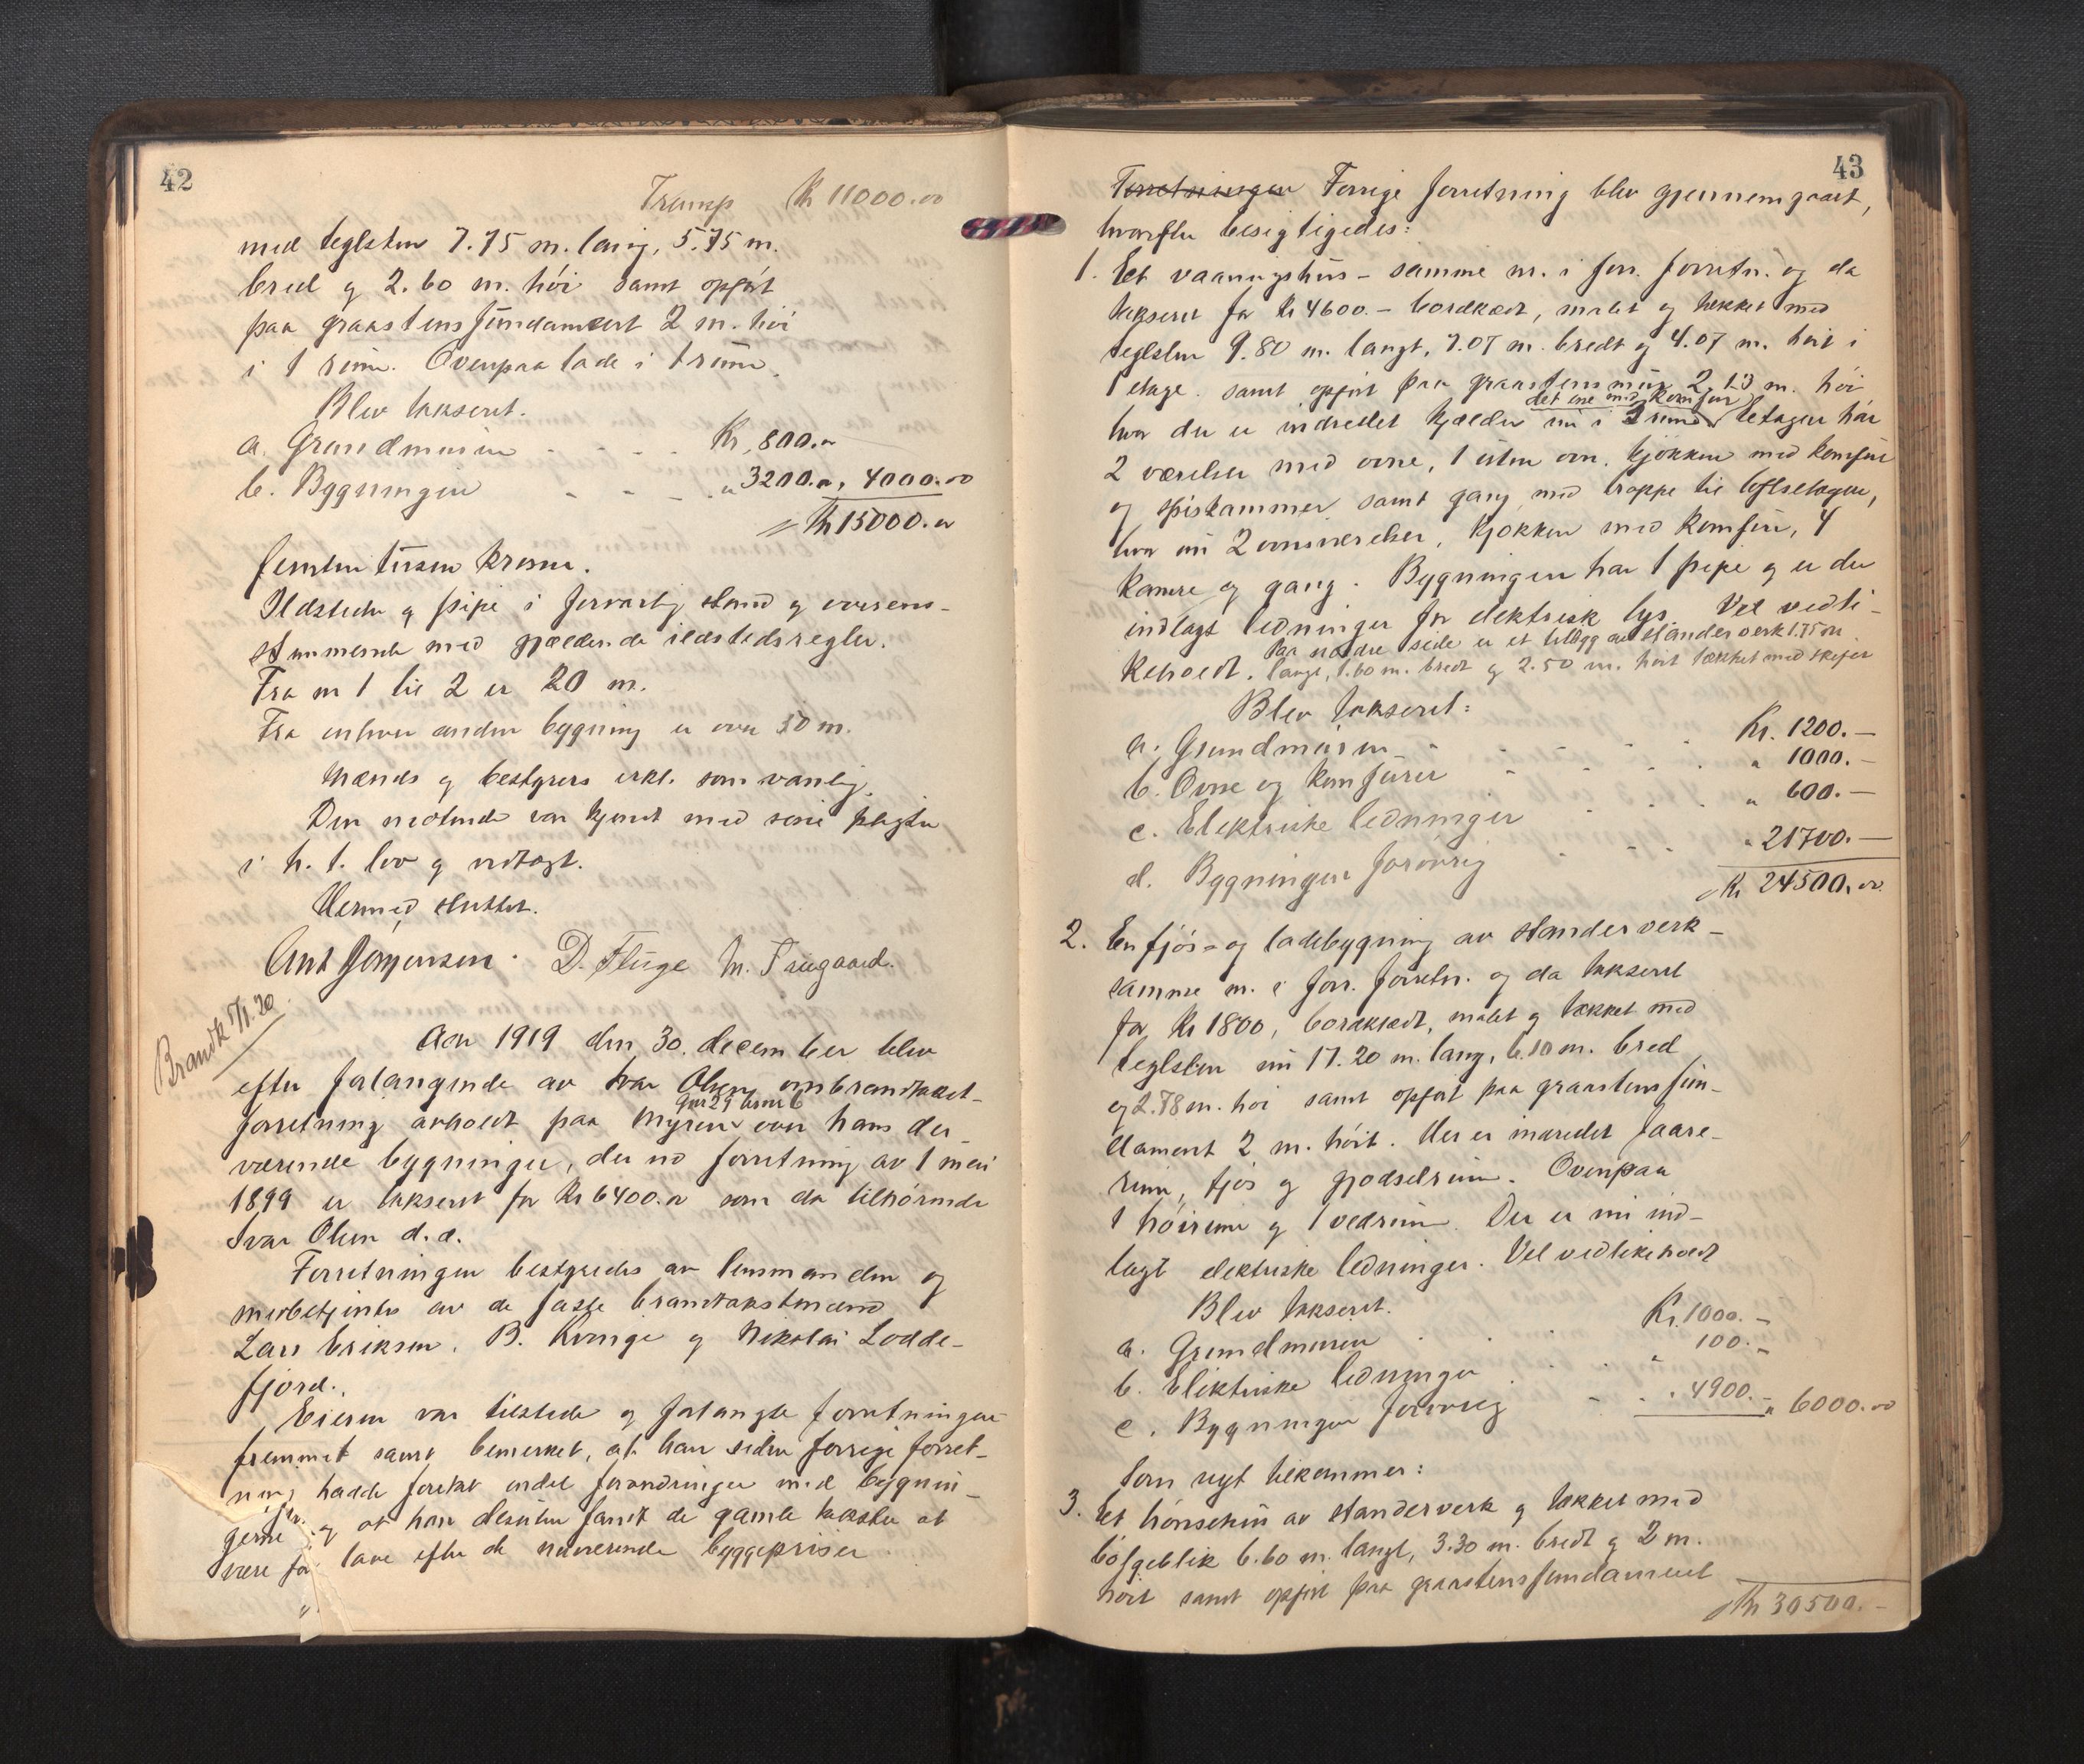 42
Transp Kr 11000.00
med teglsten 7.75 m. lang, 5.75 m.
bred og 2.60 m. høi samt opført
paa graastensfundament 2 m. høi
i 1 rum. Ovenpaa lade i 1 rum.
Blev takseret.
a. Grundmuren - - - - Kr. 800.00
b. Bygningen - - - - " 3200.00, 4000.00
Kr 15000.00
femten tusen kroner.
Ildsteder og pipe i forsvarlig stand og overens-
stemmende med gjældende ildstedsregler.
Fra nr 1 til 2 er 20 m.
Fra enhver anden bygning er over 50 m.
Mænds og bestyrers erkl. som vanlig.
Den møtende var kjendt med sine pligter
i h. t. lov og vedtægt.
Hermed sluttet.
Ant Jørgensen. D. Fluge M. Truegaard.
Brandk 5/1.20
Aar 1919 den 30. december blev
efter forlangende av Ivar Olsen ombrandtakst-
gnr 29 brnr 6
forretning avholdt paa Myren over hans der-
værende bygninger, der ved forretning av 1 mai
1899 er takseret for Kr 6400.00 som da tilhørende
Ivar Olsen d.æ.
Forretningen bestyredes av lensmanden og
medbetjentes av de faste brandtakstmænd
Lars Eriksen, B. Kvinge og Nikolai Lodde-
fjord.
Eieren var tilstede og forlangte forretningen
fremmet samt bemerket, at han siden forrige forret-
ning hadde foretat endel forandringer med bygnin-
gerne og at han desuten fandt de gamle takster at
være for lave efter de nuværende byggepriser.
43
Forretningen Forrige forretning blev gjennemgaaet,
hvorefter besigtigedes:
1. Et vaaningshus - samme nr. i forr. forretn. og da
takseret for Kr 4600.- bordklædt, malet og tækket med
teglsten 9.80 m. langt, 7.07 m. bredt og 4.07 m. høit i
1 etage. samt opført paa graastensmur 2,13 m. høi
det ene med komfur
hvor der er indredet kjælder nu i 3 rum. 1 etagen har
2 værelser med ovne, 1 uten ovn, kjøkken med komfur
og spiskammer samt gang med trappe til loftsetagen,
hvor nu 2 ovnsværelser, kjøkken med komfur, 4
kamre og gang. Bygningen har 1 pipe og er der
indlagt ledninger for elektrisk lys. Vel vedli-
Paa nordre side er et tillægg av standerverk 1.75 m.
keholdt. langt, 1.60 m. bredt og 2.50 m. høit tækket med skifer
Blev takseret:
a. Grundmuren - - - - Kr. 1200.-
b. Ovne og komfurer - - - - " 1000.-
c. Elektriske ledninger - - - " 600.-
d. Bygningen forøvrig - - - " 21700.-
Kr 24500.00
2. En fjøs- og ladebygning av standerverk -
samme nr. i forr. forretn. og da takseret
for Kr 1800, bordklædt, malet og tækket med
teglsten nu 17.20 m. lang, 6.10 m. bred
og 2.78 m. høi samt opført paa graastensfun-
dament 2 m. høit. Her er indredet faare-
rum, fjøs og gjødselrum. Ovenpaa
1 høirum og 1 vedrum. Der er nu ind-
lagt elektriske ledninger. Vel vedlikeholdt
Blev takseret.
a. Grundmuren - - - Kr. 1000.-
b. Elektriske ledninger - - - " 100.-
c. Bygningen forøvrig - - " 4900.- " 6000.00
Som nyt tilkommer:
3. Et hønsehus av standerverk og tækket med
bølgeblik 6.60 m. langt, 3.30 m. bredt og 2 m.
høit samt opført paa graastensfundament
Kr 30500.-